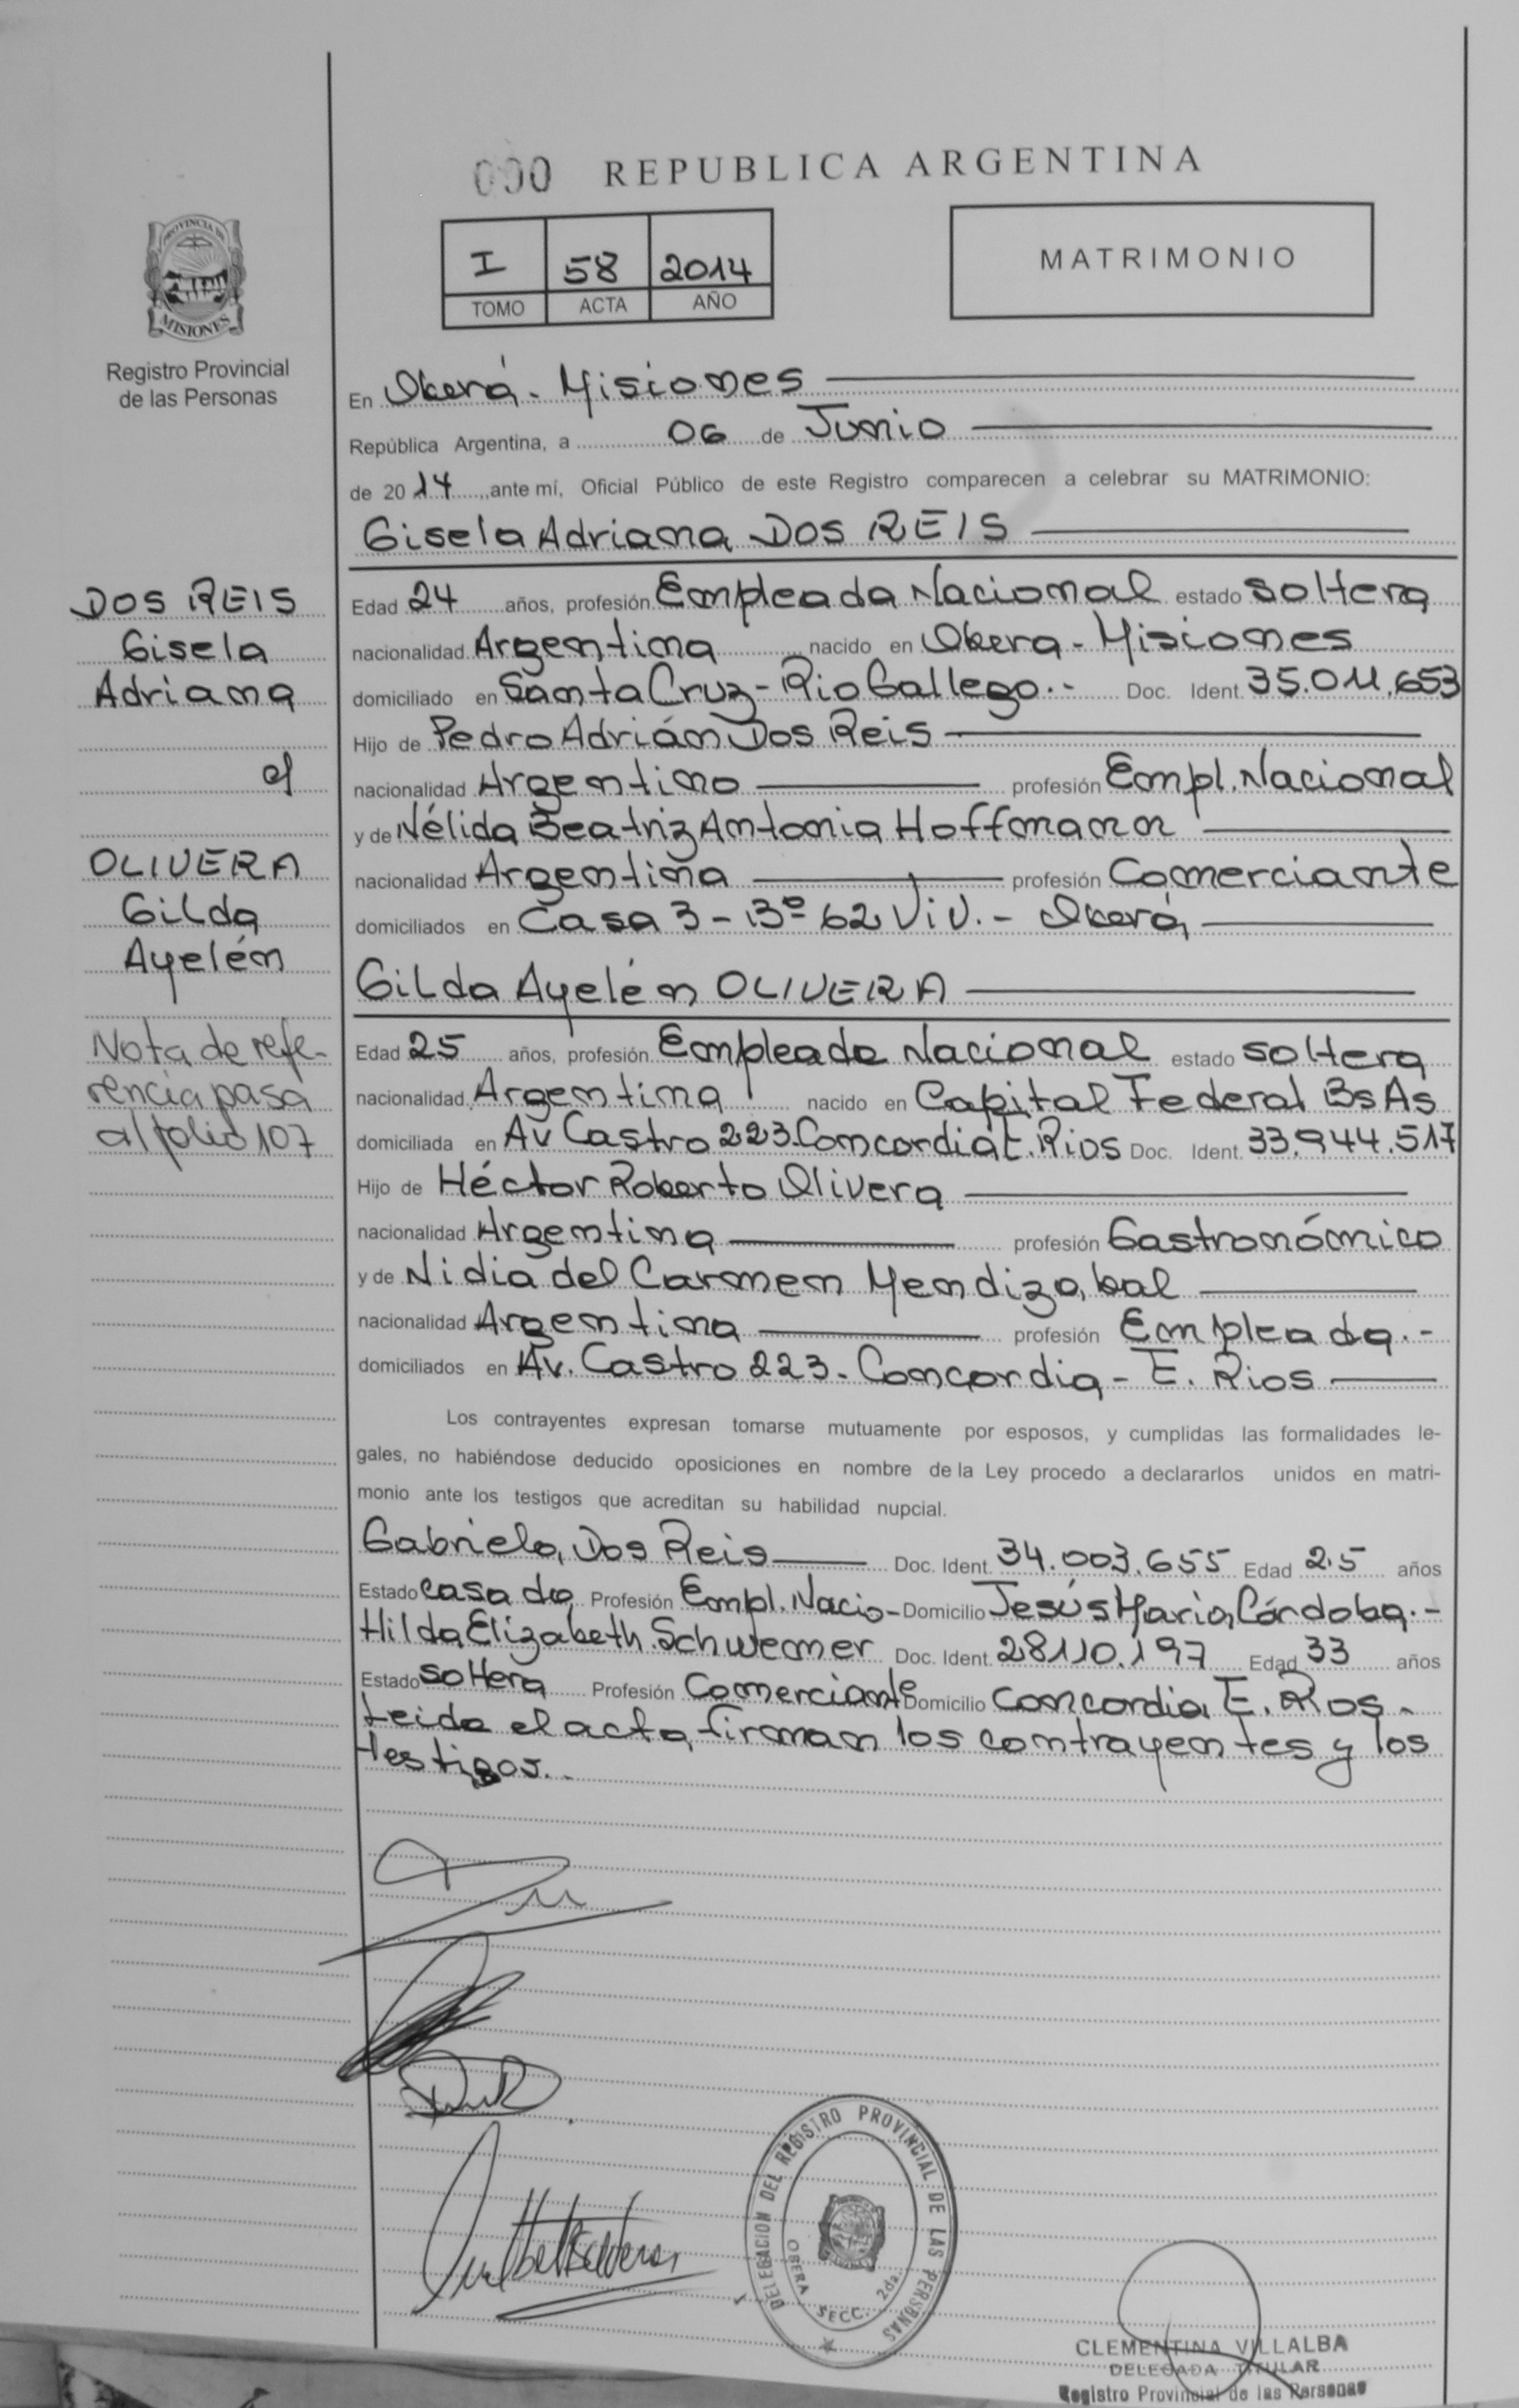 000 REPUBLICA ARGENTINA
PROVINCIA DE
MISIONES
Registro Provincial
de las Personas
I 58 2014
TOMO ACTA AÑO
MATRIMONIO
En Oberá - Misiones
República Argentina, a 06 de Junio
de 2014, ante mí, Oficial Público de este Registro comparecen a celebrar su MATRIMONIO:
Gisela Adriana DOS REIS
DOS REIS
Gisela
Adriana
c/
OLIVERA
Gilda
Ayelén
Nota de refe-
rencia pasa
al folio 107
Edad 24 años, profesión Empleada Nacional estado soltera
nacionalidad Argentina nacido en Obera - Misiones
domiciliado en Santa Cruz - Rio Gallego.- Doc. Ident. 35.011.653
Hijo de Pedro Adrián Dos Reis
nacionalidad Argentino profesión Empl. Nacional
y de Nélida Beatriz Antonia Hoffmann
nacionalidad Argentina profesión Comerciante
domiciliados en Casa 3 - Bº 62 Viv. - Oberá
Gilda Ayelén OLIVERA
Edad 25 años, profesión Empleada Nacional estado soltera
nacionalidad Argentina nacido en Capital Federal Bs As
domiciliada en Av Castro 223. Concordia E. Rios Doc. Ident. 33.944.517
Hijo de Héctor Roberto Olivera
nacionalidad Argentina profesión Gastronómico
y de Nidia del Carmen Mendizabal
nacionalidad Argentina profesión Empleada.-
domiciliados en Av. Castro 223 - Concordia - E. Rios
Los contrayentes expresan tomarse mutuamente por esposos, y cumplidas las formalidades le-
gales, no habiéndose deducido oposiciones en nombre de la Ley procedo a declararlos unidos en matri-
monio ante los testigos que acreditan su habilidad nupcial.
Gabriela Dos Reis Doc. Ident. 34.003.655 Edad 25 años
Estado casada Profesión Empl. Nacio- Domicilio Jesús Maria, Córdoba.-
Hilda Elizabeth Schwemer Doc. Ident. 28110.197 Edad 33 años
Estado soltera Profesión Comerciante Domicilio Concordia E. Rios -
Leida el acta, firman los contrayentes y los
testigos.-
DELEGACION DEL REGISTRO PROVINCIAL DE LAS PERSONAS
OBERA SECC. 2da.
CLEMENTINA VILLALBA
DELEGADA TITULAR
Registro Provincial de las Personas